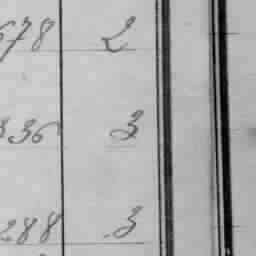 678 2
336 3
288 3